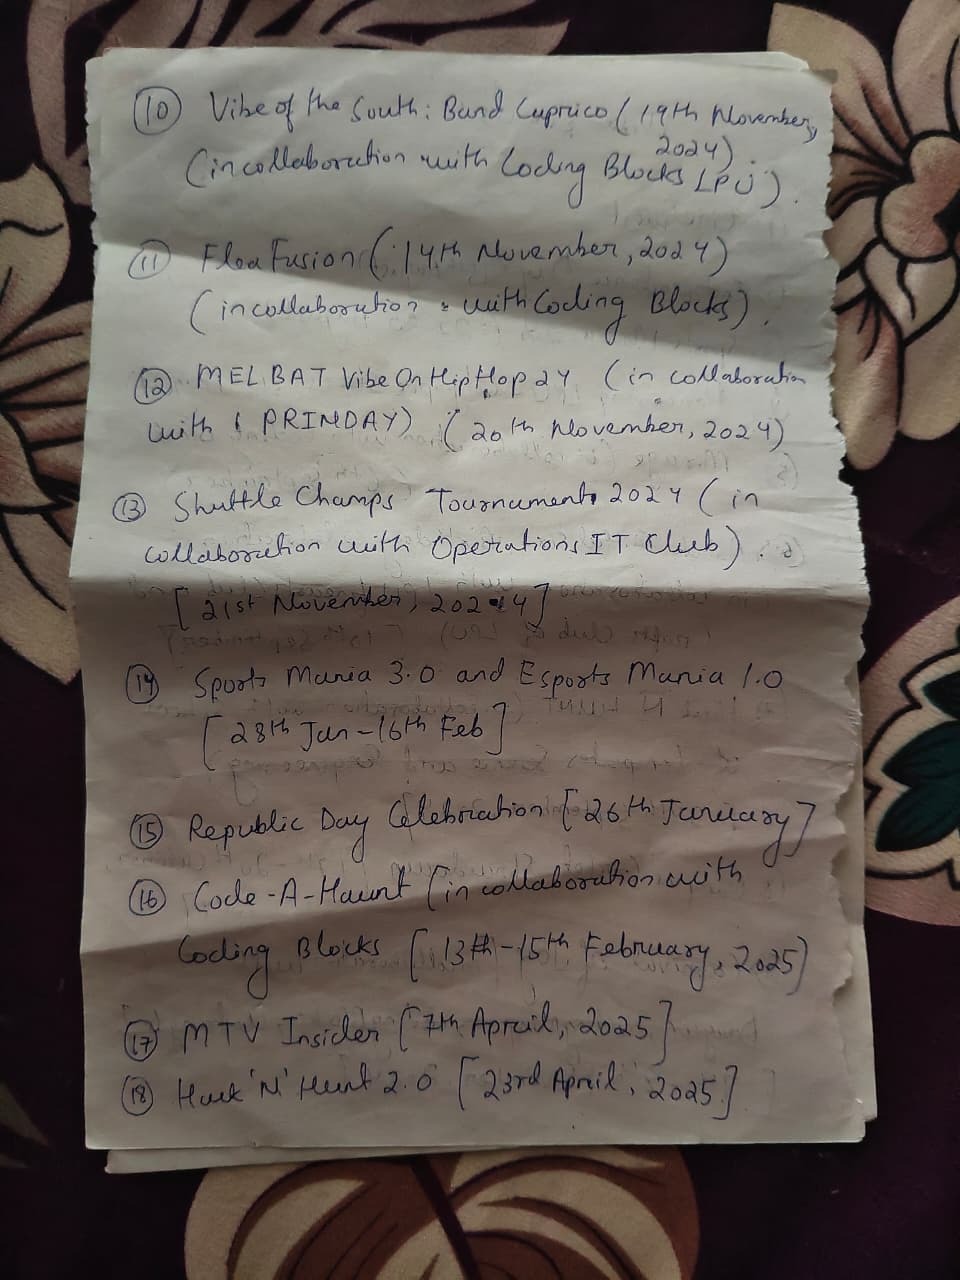 (10) Vibe of the South: Band Cuprico (19th November,
2024)
(in collaboration with Coding Blocks LPU).
(11) Flea Fusion (14th November, 2024)
(in collaboration with Coding Blocks).
(12) MELBAT Vibe On Hip Hop 24 (in collaboration
with PRIMDAY) (20th November, 2024)
(13) Shuttle Champs Tournament 2024 (in
collaboration with Operations IT Club).
[21st November, 2024]
(14) Sports Mania 3.0 and Esports Mania 1.0
[28th Jan-16th Feb]
(15) Republic Day Celebration [26th January]
(16) Code-A-Haunt (in collaboration with
Coding Blocks [13th-15th February, 2025)
(17) MTV Insider [7th April, 2025]
(18) Hack 'N' Hunt 2.0 [23rd April, 2025]